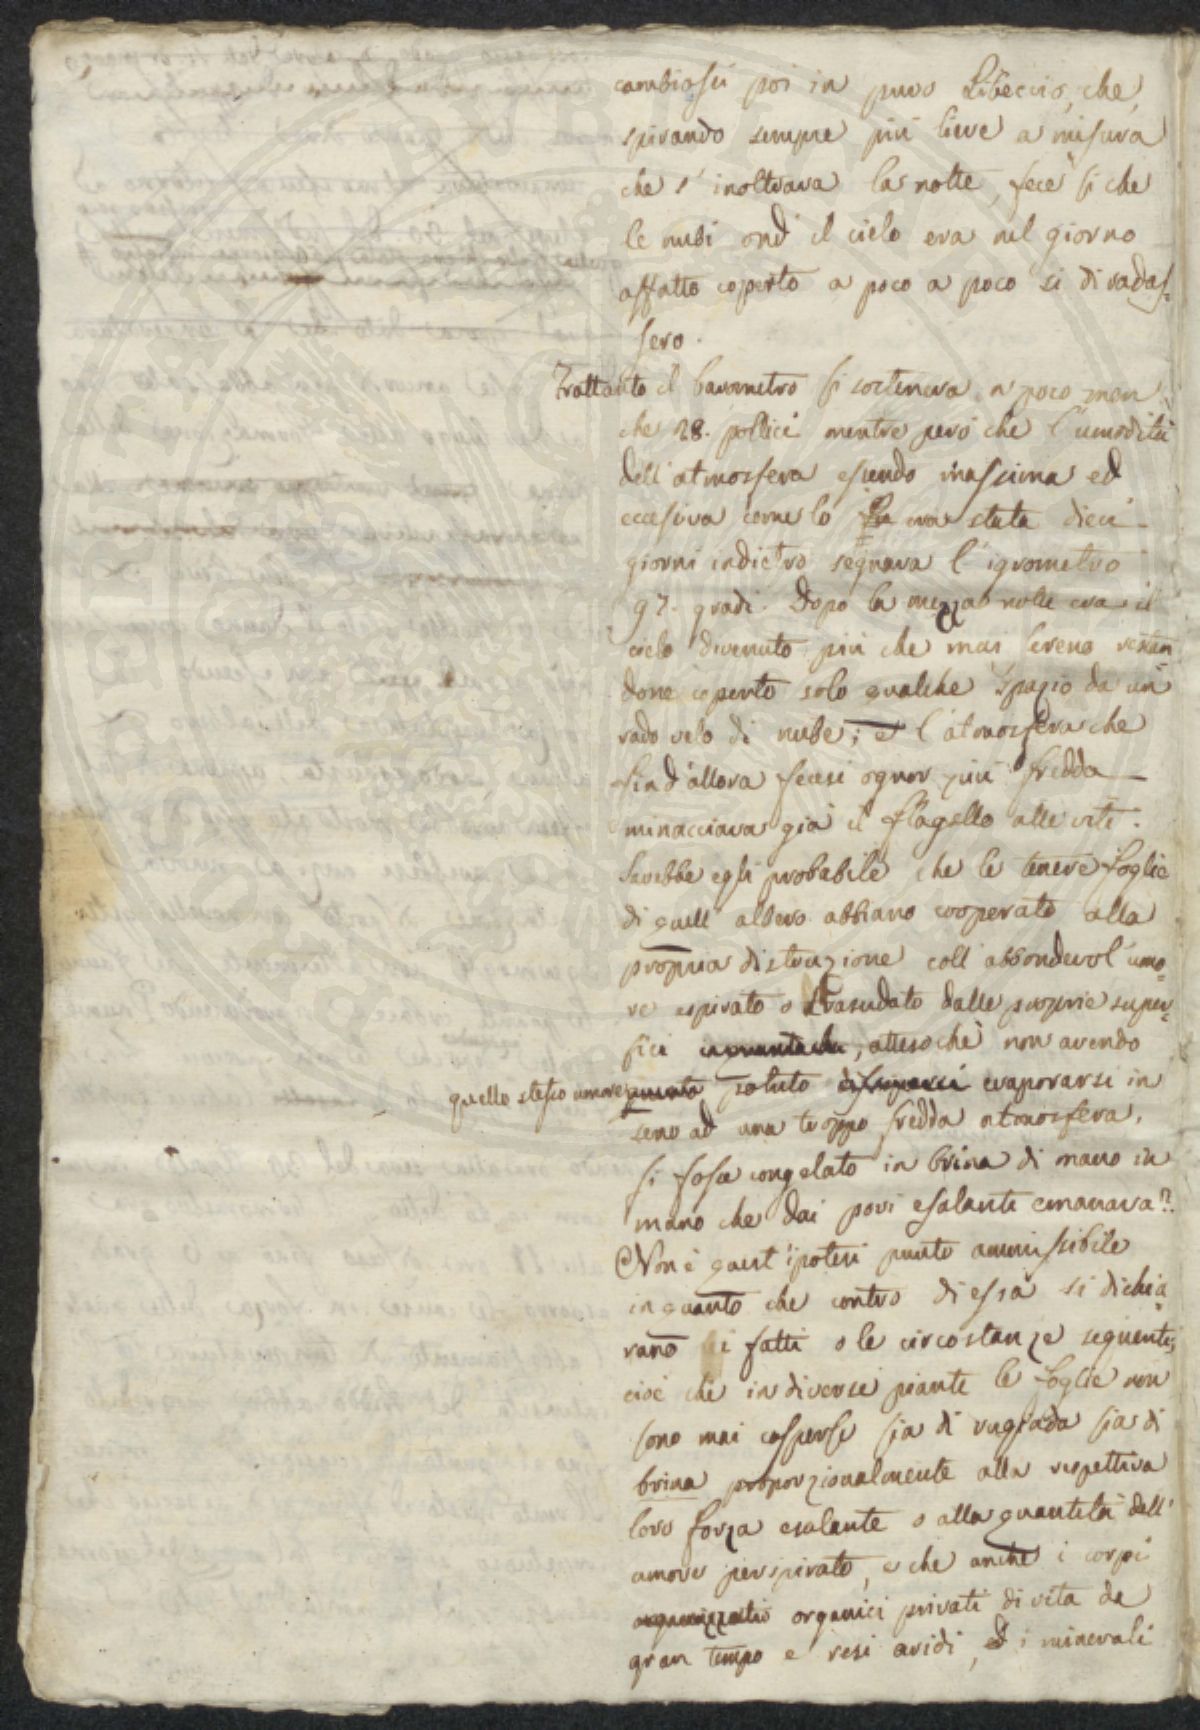 cambiossi poi in puro Libeccio, che,
spirando sempre più lieve a misura
che s' inoltrava la notte, fece sì che
le nubi ond' il cielo era nel giorno
affatto coperto a poco a poco si diradas-
sero.
Frattanto il barometro si sosteneva a poco men
che 28. pollici mentre però che l'umidità
dell' atmosfera essendo massima ed
eccessiva come lo era stata dieci
giorni indietro segnava l' igrometro
97. gradi. Dopo la mezza notte era il
cielo divenuto più che mai sereno restan
done coperto solo qualche spazio da un
rado velo di nube; e l'atmosfera che
fin d'allora fecesi ognor più fredda
minacciava già il flagello alle viti.
Sarebbe egli probabile che le tenere foglie
di quell' albero abbiano cooperato alla
propria distruzione coll' abbondevol umo-
re espirato o trasudato dalle proprie super-
fici, attesochè non avendo
quello stesso umore potuto evaporarsi in
seno ad una troppo fredda atmosfera,
si fosse congelato in brina di mano in
mano che dai pori esalanti emanava?
Non è quest' ipotesi punto ammissibile
in quanto che contro di essa si dichia-
rano i fatti o le circostanze seguenti;
cioè che in diverse piante le foglie non
sono mai cosperse sia di rugiada sia di
brina proporzionalmente alla rispettiva
loro forza esalante o alla quantità dell'
umore perspirato, e che anche i corpi
organici privati di vita da
gran tempo e resi aridi, ed i minerali